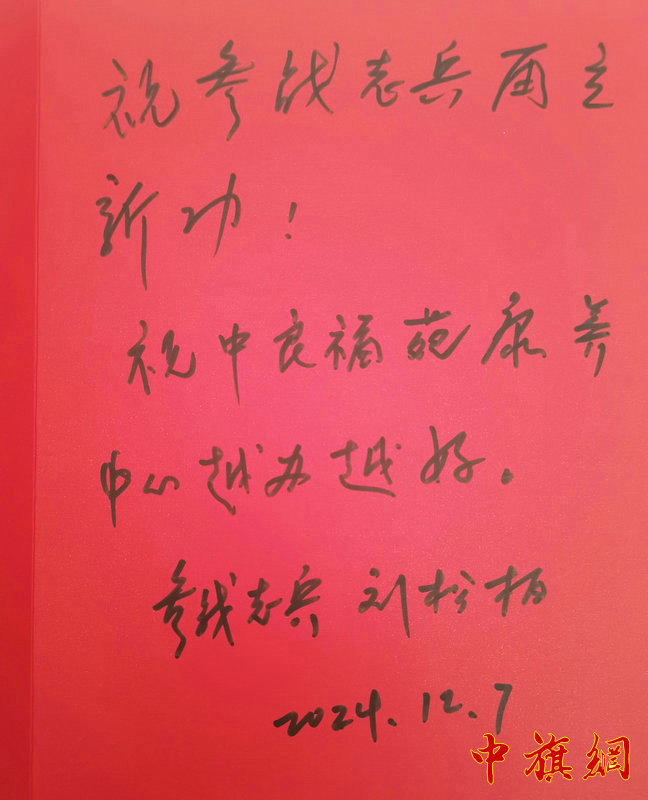 祝参战志兵再立
新功！
祝中良福苑康养
中心越办越好。
参战志兵 刘松柏
2024.12.7
中旗網